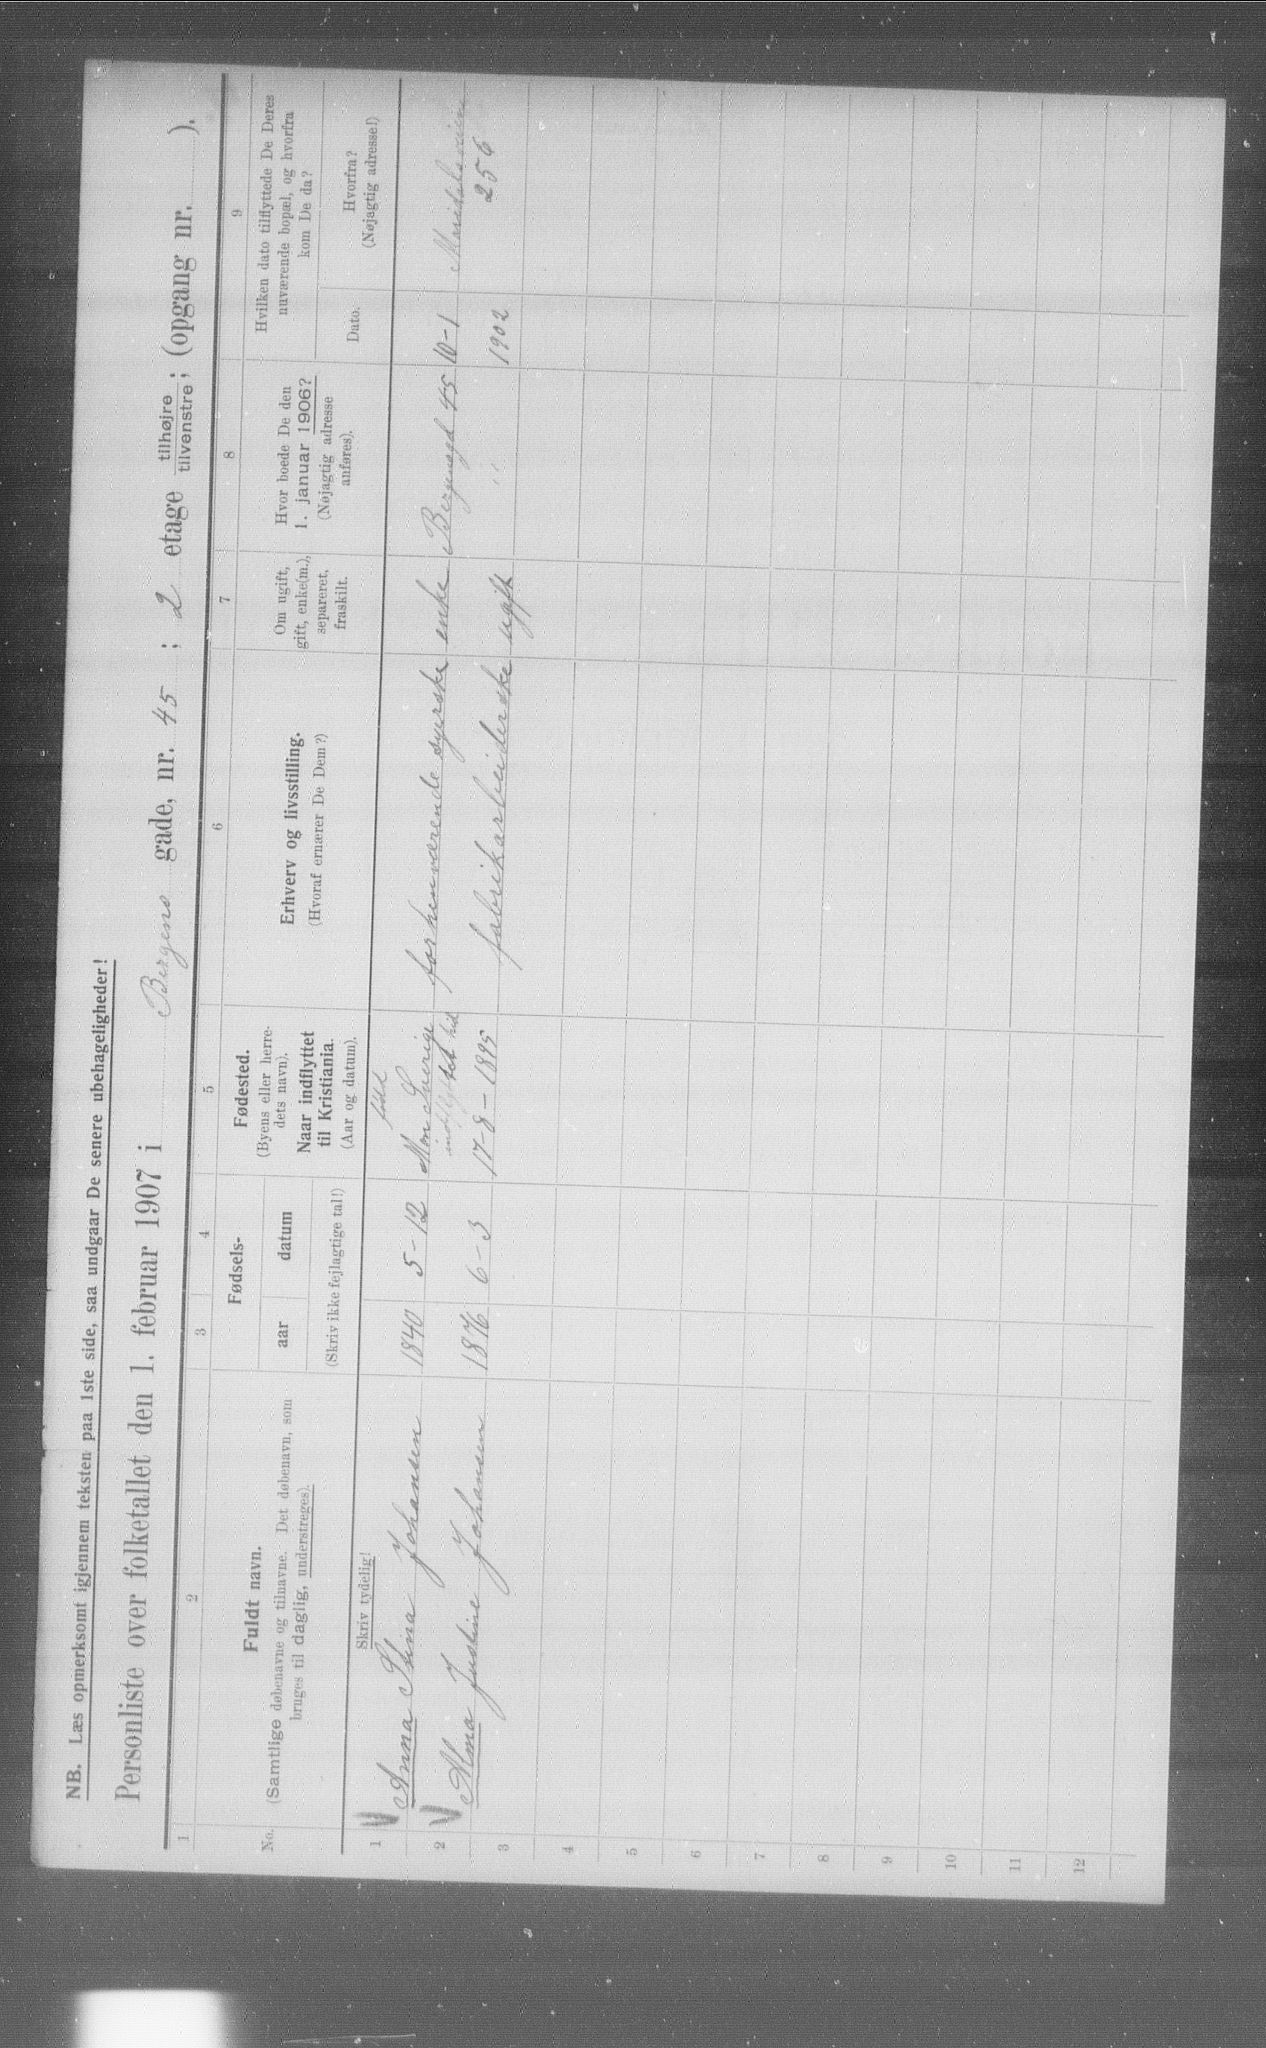 NB. Læs opmerksomt igjennem teksten paa 1ste side, saa undgaar De senere ubehageligheder!
Personliste over folketallet den 1. februar 1907 i Bergens gade, nr. 45; 2 etage tilhøjre / tilvenstre; (opgang nr. ).
1 2 3 4 5 6 7 8 9
No.
Fuldt navn.
(Samtlige døbenavne og tilnavne. Det døbenavn, som
bruges til daglig, understreges).
Skriv tydelig!
Fødsels-
aar datum
(Skriv ikke fejlagtige tal!)
Fødested.
(Byens eller herre-
dets navn).
Naar indflyttet
til Kristiania.
(Aar og datum).
Erhverv og livsstilling.
(Hvoraf ernærer De Dem?)
Om ugift,
gift, enke(m.),
separeret,
fraskilt.
Hvor boede De den
1. januar 1906?
(Nøjagtig adresse
anføres).
Hvilken dato tilflyttede De Deres
nuværende bopæl, og hvorfra
kom De da?
Dato.
Hvorfra?
(Nøjagtig adresse!)
född
1 Anna Stina Johansen 1840 5-12 Sverige forhenværende syerske enke Bergensgd 45 10-1
indflyttet hid
2 Alma Justine Johansen 1876 6-3 17-8-1895 fabrikarbeiderske ugift " 1902 256
3
4
5
6
7
8
9
10
11
12